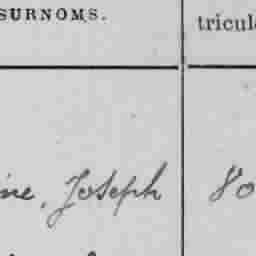 SURNOMS. tricul
ine, Joseph 80